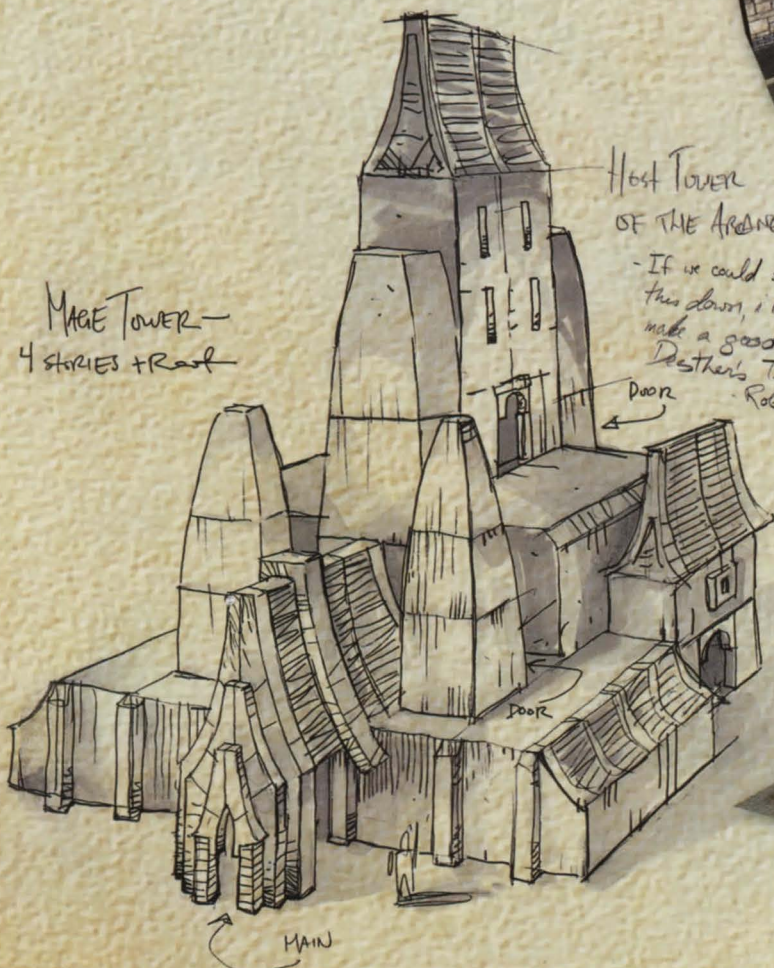 MAGE TOWER —
4 STORIES + Roof
HOST TOWER
OF THE ARCANE
- If we could
this down, i
make a good
Desther's T
- Rob
DOOR
DOOR
MAIN